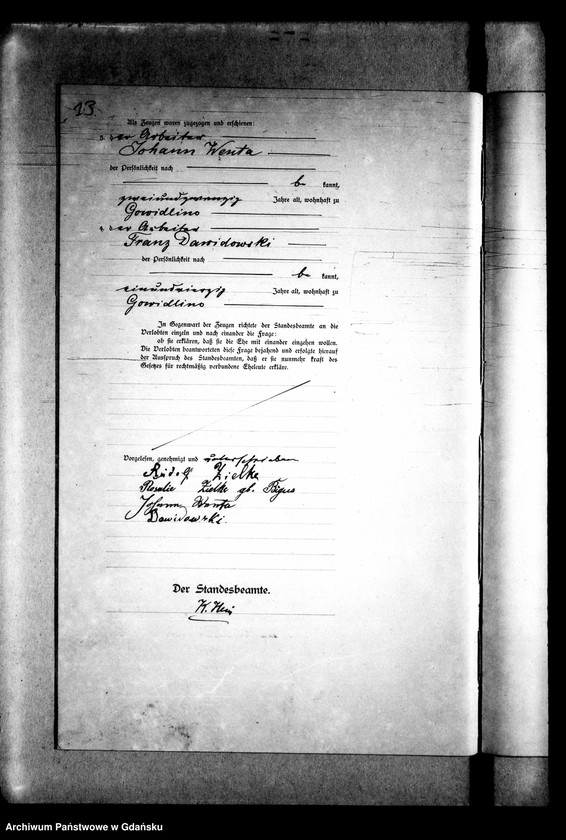 13
Als Zeugen waren zugezogen und erschienen:
der Arbeiter
Johann Wenta
der Persönlichkeit nach
be kannt,
zweiundzwanzig Jahre alt, wohnhaft zu
Gowidlino
4. der Arbeiter
Franz Dawidowski
der Persönlichkeit nach
be kannt,
einundvierzig Jahre alt, wohnhaft zu
Gowidlino
In Gegenwart der Zeugen richtete der Standesbeamte an die
Verlobten einzeln und nach einander die Frage:
ob sie erklären, daß sie die Ehe mit einander eingehen wollen.
Die Verlobten beantworteten diese Frage bejahend und erfolgte hierauf
der Ausspruch des Standesbeamten, daß er sie nunmehr kraft des
Gesetzes für rechtmäßig verbundene Eheleute erkläre.
Vorgelesen, genehmigt und unterschrieben
Rudolf Zielke
Rosalie Zielke gb.
Johann Wenta
Dawidowski.
Der Standesbeamte.
K.
Archiwum Państwowe w Gdańsku